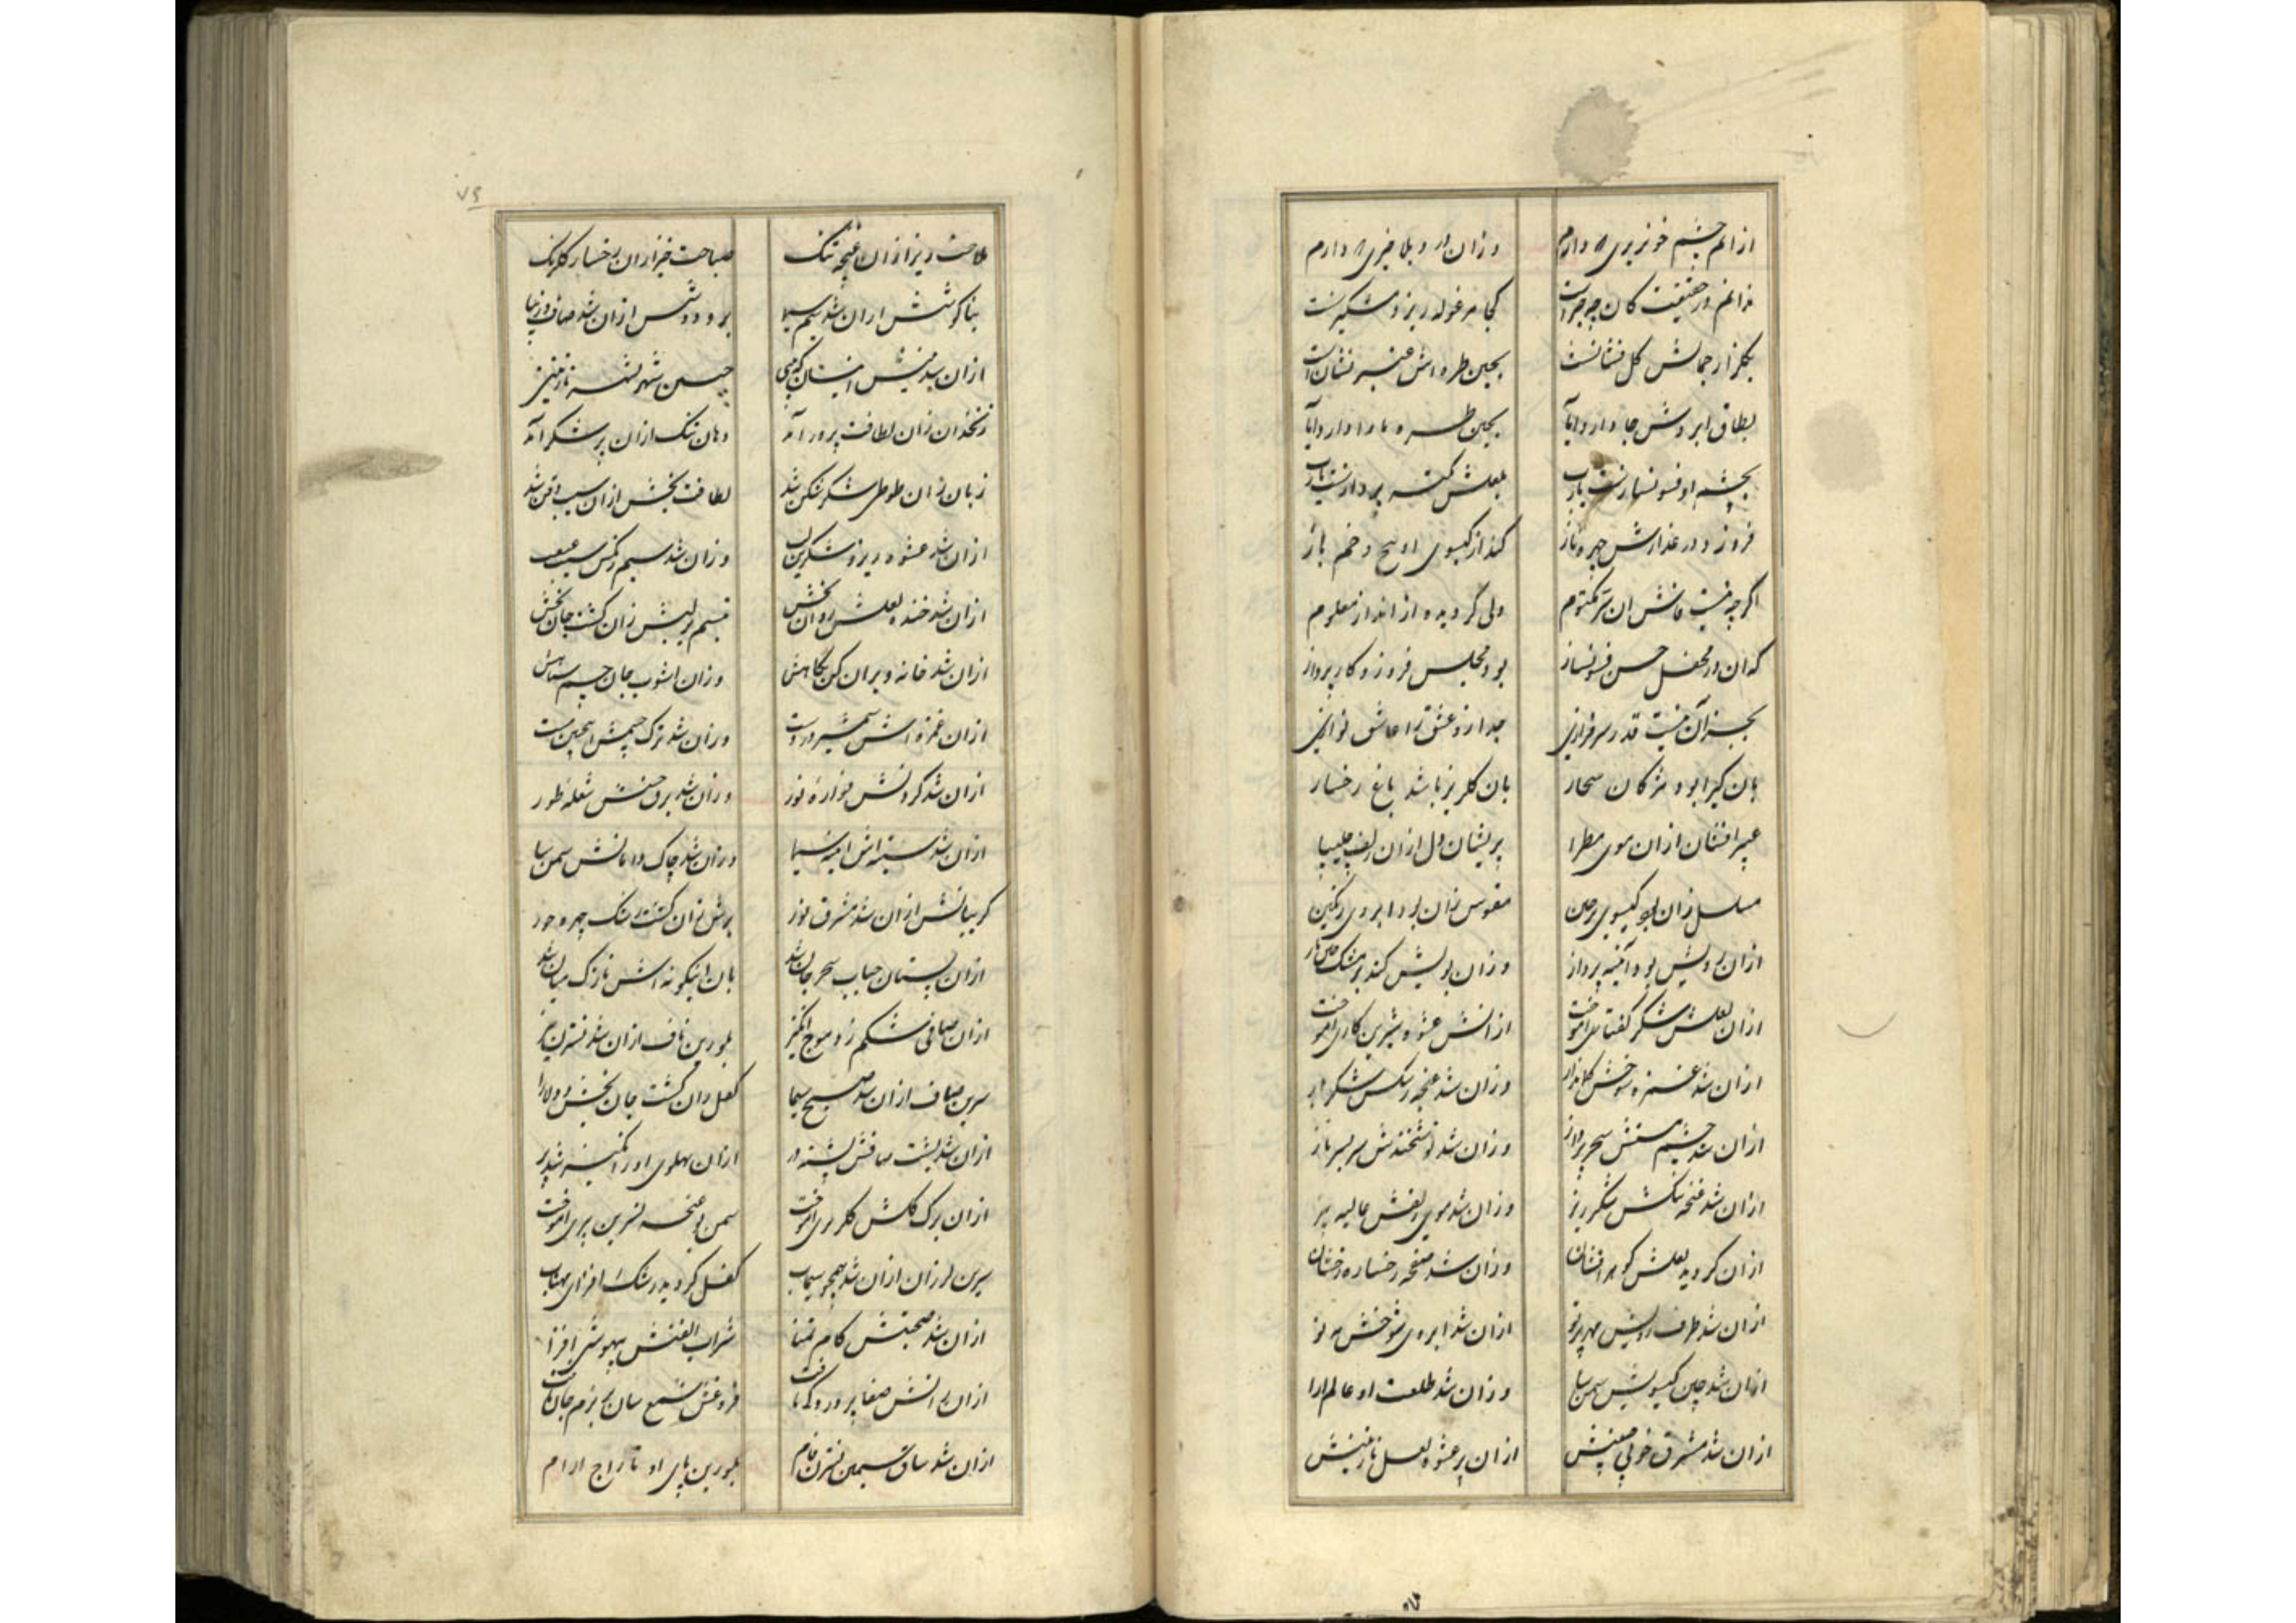 ازانم چشم خونریزی که دارم وزان درد و بلا خیزی که دارم
ندانم در حقیقت کان چه چیز است کجا مرغوله ریز و مشکبیز است
بگلزار جمالش گل فشانست بچین طره اش عنبر نشان است
بطاق ابروش جا دارد ایا بچین طره ماوا دارد ایا
بچشم او فسونسازست یارب بلعلش نکته پردازست یارب
فروزد در عذارش چهره ناز کند از گیسوی او پیچ و خم باز
اگرچه نیست دانش ان سر مکتوم ولی گردیده از انداز معلوم
که ان در محفل حسن فسونساز بود مجلس فروز و کارپرداز
بجز آن نیست قدر سرفرازی جدا زو عشق را عاشق نوازی
بان گیرا بود مژگان سحار بان گلریز باشد باغ رخسار
عبیر افشان ازان موی مطرا پریشان دل ازان زلف چلیپا
مسلسل زان بود گیسوی پرچین مقوس زان بود ابروی رنگین
ازان رویش بود آئینه پرداز وزان بویش کند
ازان لعلش شکر گفتاری آموخت ازانش عشوه شیرین کاری آموخت
ازان شد غمزه شوخش وزان شد غنچه تنگش شکر بار
ازان شد چشم مستش سحر پرداز وزان شد نوشخندش سر بسر ناز
ازان شد غنچه تنگش شکر ریز وزان شد موی زلفش غالیه بیز
ازان گردید لعلش گوهر افشان وزان شد صفحه رخساره رخشان
ازان شد طرف رویش مهر پرتو ازان شد ابروی شوخش مه نو
ازان شد چین گیسویش سمن سا وزان شد طلعت او عالم ارا
ازان شد مشرق خوبی جبینش ازان پر عشوه لعل نازنینش
۷۶
ملاحت ریز ازان غنچه تنگ صباحت خیز ازان رخسار گلرنگ
بناگوشش ازان شد سیم سیما بر و دوشش ازان شد صاف و زیبا
ازان شد بینیش چنین شهر نازنینی
زنخدان زان لطافت پرور آمد دهان تنگ ازان پر شکر آمد
زبان زان طوطی شکر شکن شد لطافت بخش ازان سیب ذقن شد
ازان شد عشوه ریز و شکرین لب وزان شد سیم رنگ سیب غبغب
ازان شد خنده لعلش روان بخش تبسم بر لبش زان گشت جان بخش
ازان شد خانه ویران کن نگاهش وزان اشوب جان چشم سیاهش
ازان غمزه اش شمشیر در دست وزان شد ترک چشمش اینچنین مست
ازان شد گردنش فواره نور وزان شد برق حسنش شعله طور
ازان شد سینه اش اینه سیما وزان شد چاک دامانش سمن سا
گریبانش ازان شد مشرق نور برش زان گشت رشک چهره حور
ازان پستان حباب بحر جان شد بان اینگونه اش نازک میان شد
ازان صافی شکم زد موج انگیز بلورین ناف ازان شد نسترن خیز
سرین صاف ازان شد صبح سیما کفل زان گشت جان بخش و دلارا
ازان شد پشت صافش پشته در ازان پهلوی او زائینه شد پر
ازان برگ گلش گلبری اموخت سمن بو غنچه نسرین پری اموخت
سرین لرزان ازان شد همچو سیماب کفل گردید رشک افزای مهتاب
ازان شد صحبتش کام تمنا شراب الفتش بیهوشی افزا
ازان رانش صفا پرورد گشت فروغش شمع سان بزم جان
ازان شد ساق سیمین نسترن فام بلورین پای او تاراج ارام